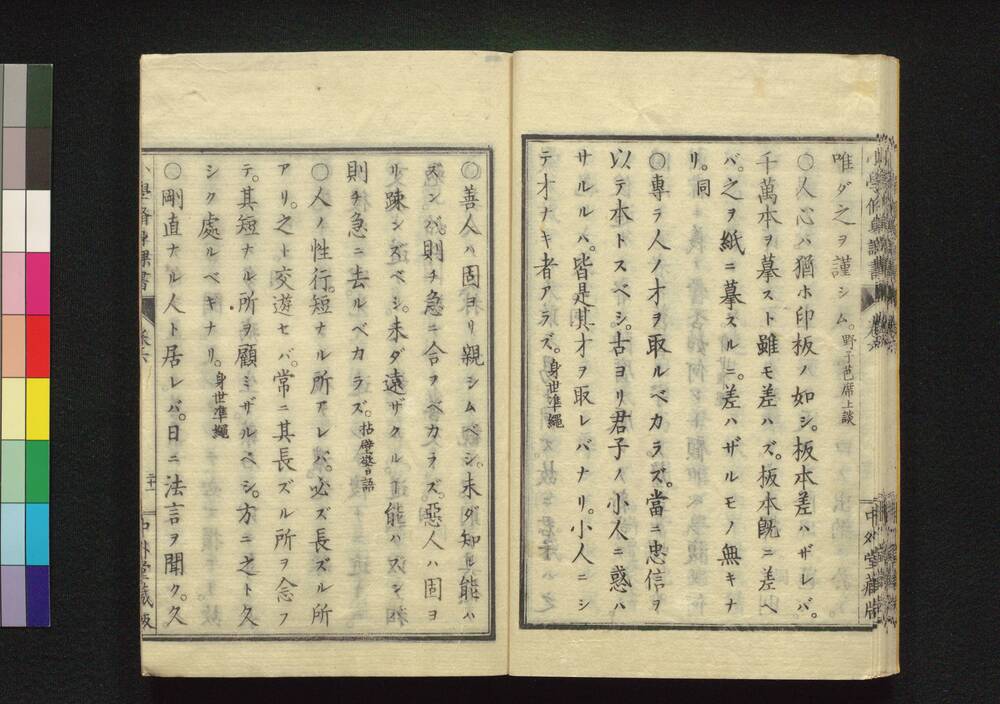 唯ダ之ヲ謹シム。野子芭席上談
○人心ハ猶ホ印板ノ如シ。板本差ハザレバ。
千萬本ヲ摹スト雖モ差ハズ。板本既ニ差ヘ
バ。之ヲ紙ニ摹スルニ。差ハザルモノ無キナ
リ。同
○專ラ人ノ才ヲ取ルベカラズ。當ニ忠信ヲ
以テ本トスベシ。古ヨリ君子ノ小人ニ惑ハ
サルルハ。皆是其才ヲ取レバナリ。小人ニシ
テ才ナキ者アラズ。身世準繩
中外堂藏版
○善人ハ固ヨリ親シムベシ。未ダ知ル能ハ
ズンバ。則チ急ニ合ヲベカラズ。惡人ハ固ヨ
リ疎ンズベシ。未ダ遠ザクル⼁能ハズンバ
則チ急ニ去ルベカラズ。拈屏語
○人ノ性行。短ナル所アレバ。必ズ長ズル所
アリ。之ト交遊セバ。常ニ其長ズル所ヲ念フ
テ。其短ナル所ヲ顧ミザルベシ。方ニ之ト久
シク處ルベキナリ。身世準繩
○剛直ナル人ト居レバ。日ニ法言ヲ聞ク。久
卷六
二十一
中外堂藏版